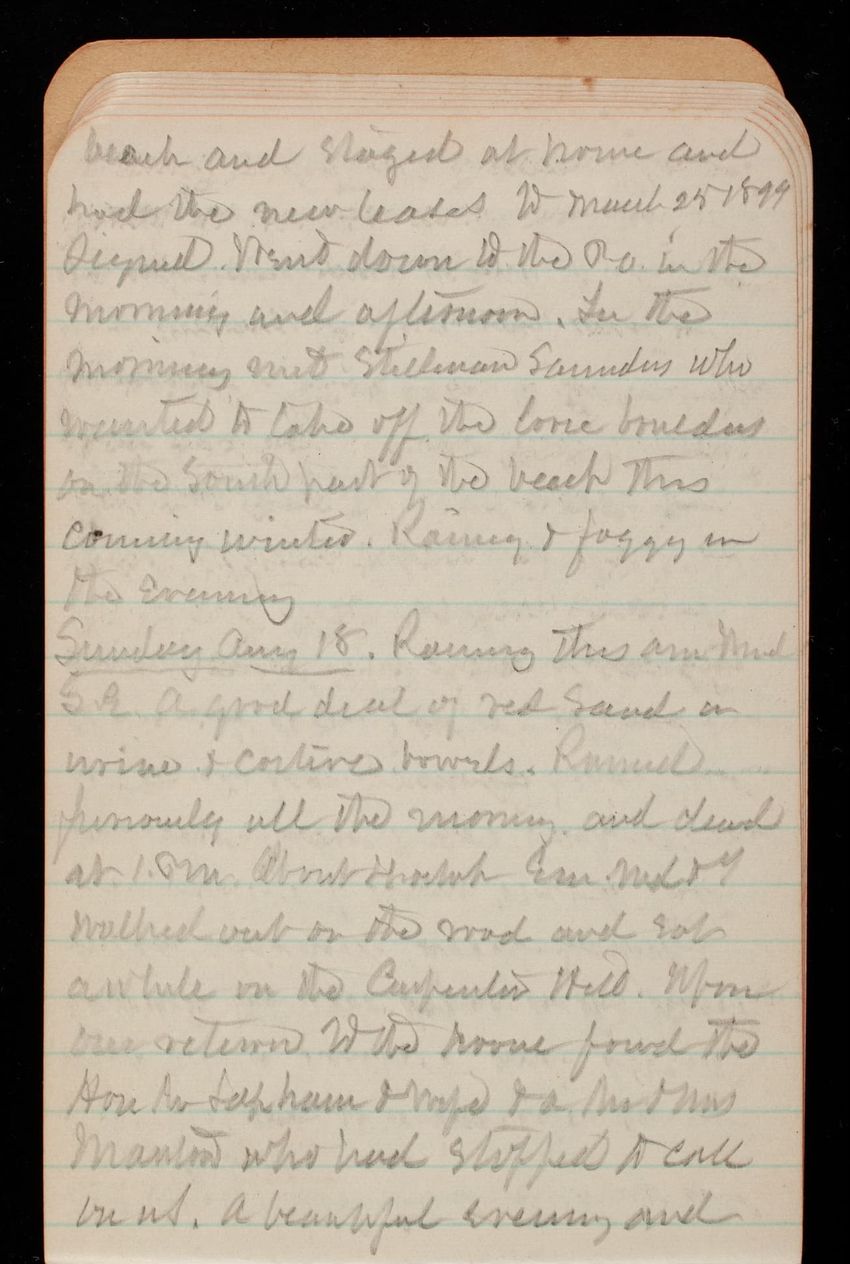 beach and stayed at home and
had the new leases to March 25 1899
signed. Went down to the P.O. in the
morning and afternoon. In the
morning met Stillman Saunders who
wanted to take off the loose boulders
on the South part of the beach this
coming winter. Rainy & foggy in
the evening
Sunday Aug 18. Raining this am Wind
S.E. A good deal of red sand in
urine & costive bowels. Rained
furiously all the morning and
at 1. P.M. About 4 oclock Em Ned & I
walked out on the road and sat
awhile on the Carpenter Hill. Upon
our return to the house found the
Hon Lapham & wife & a Mr & Mrs
Manton who had stopped to call
on us. A beautiful evening and